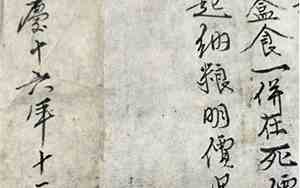 盒食一併在死
起納粮明價
慶十六年十